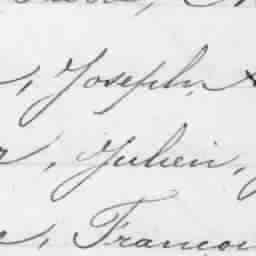 , Joseph,
, Julien,
, Françoi